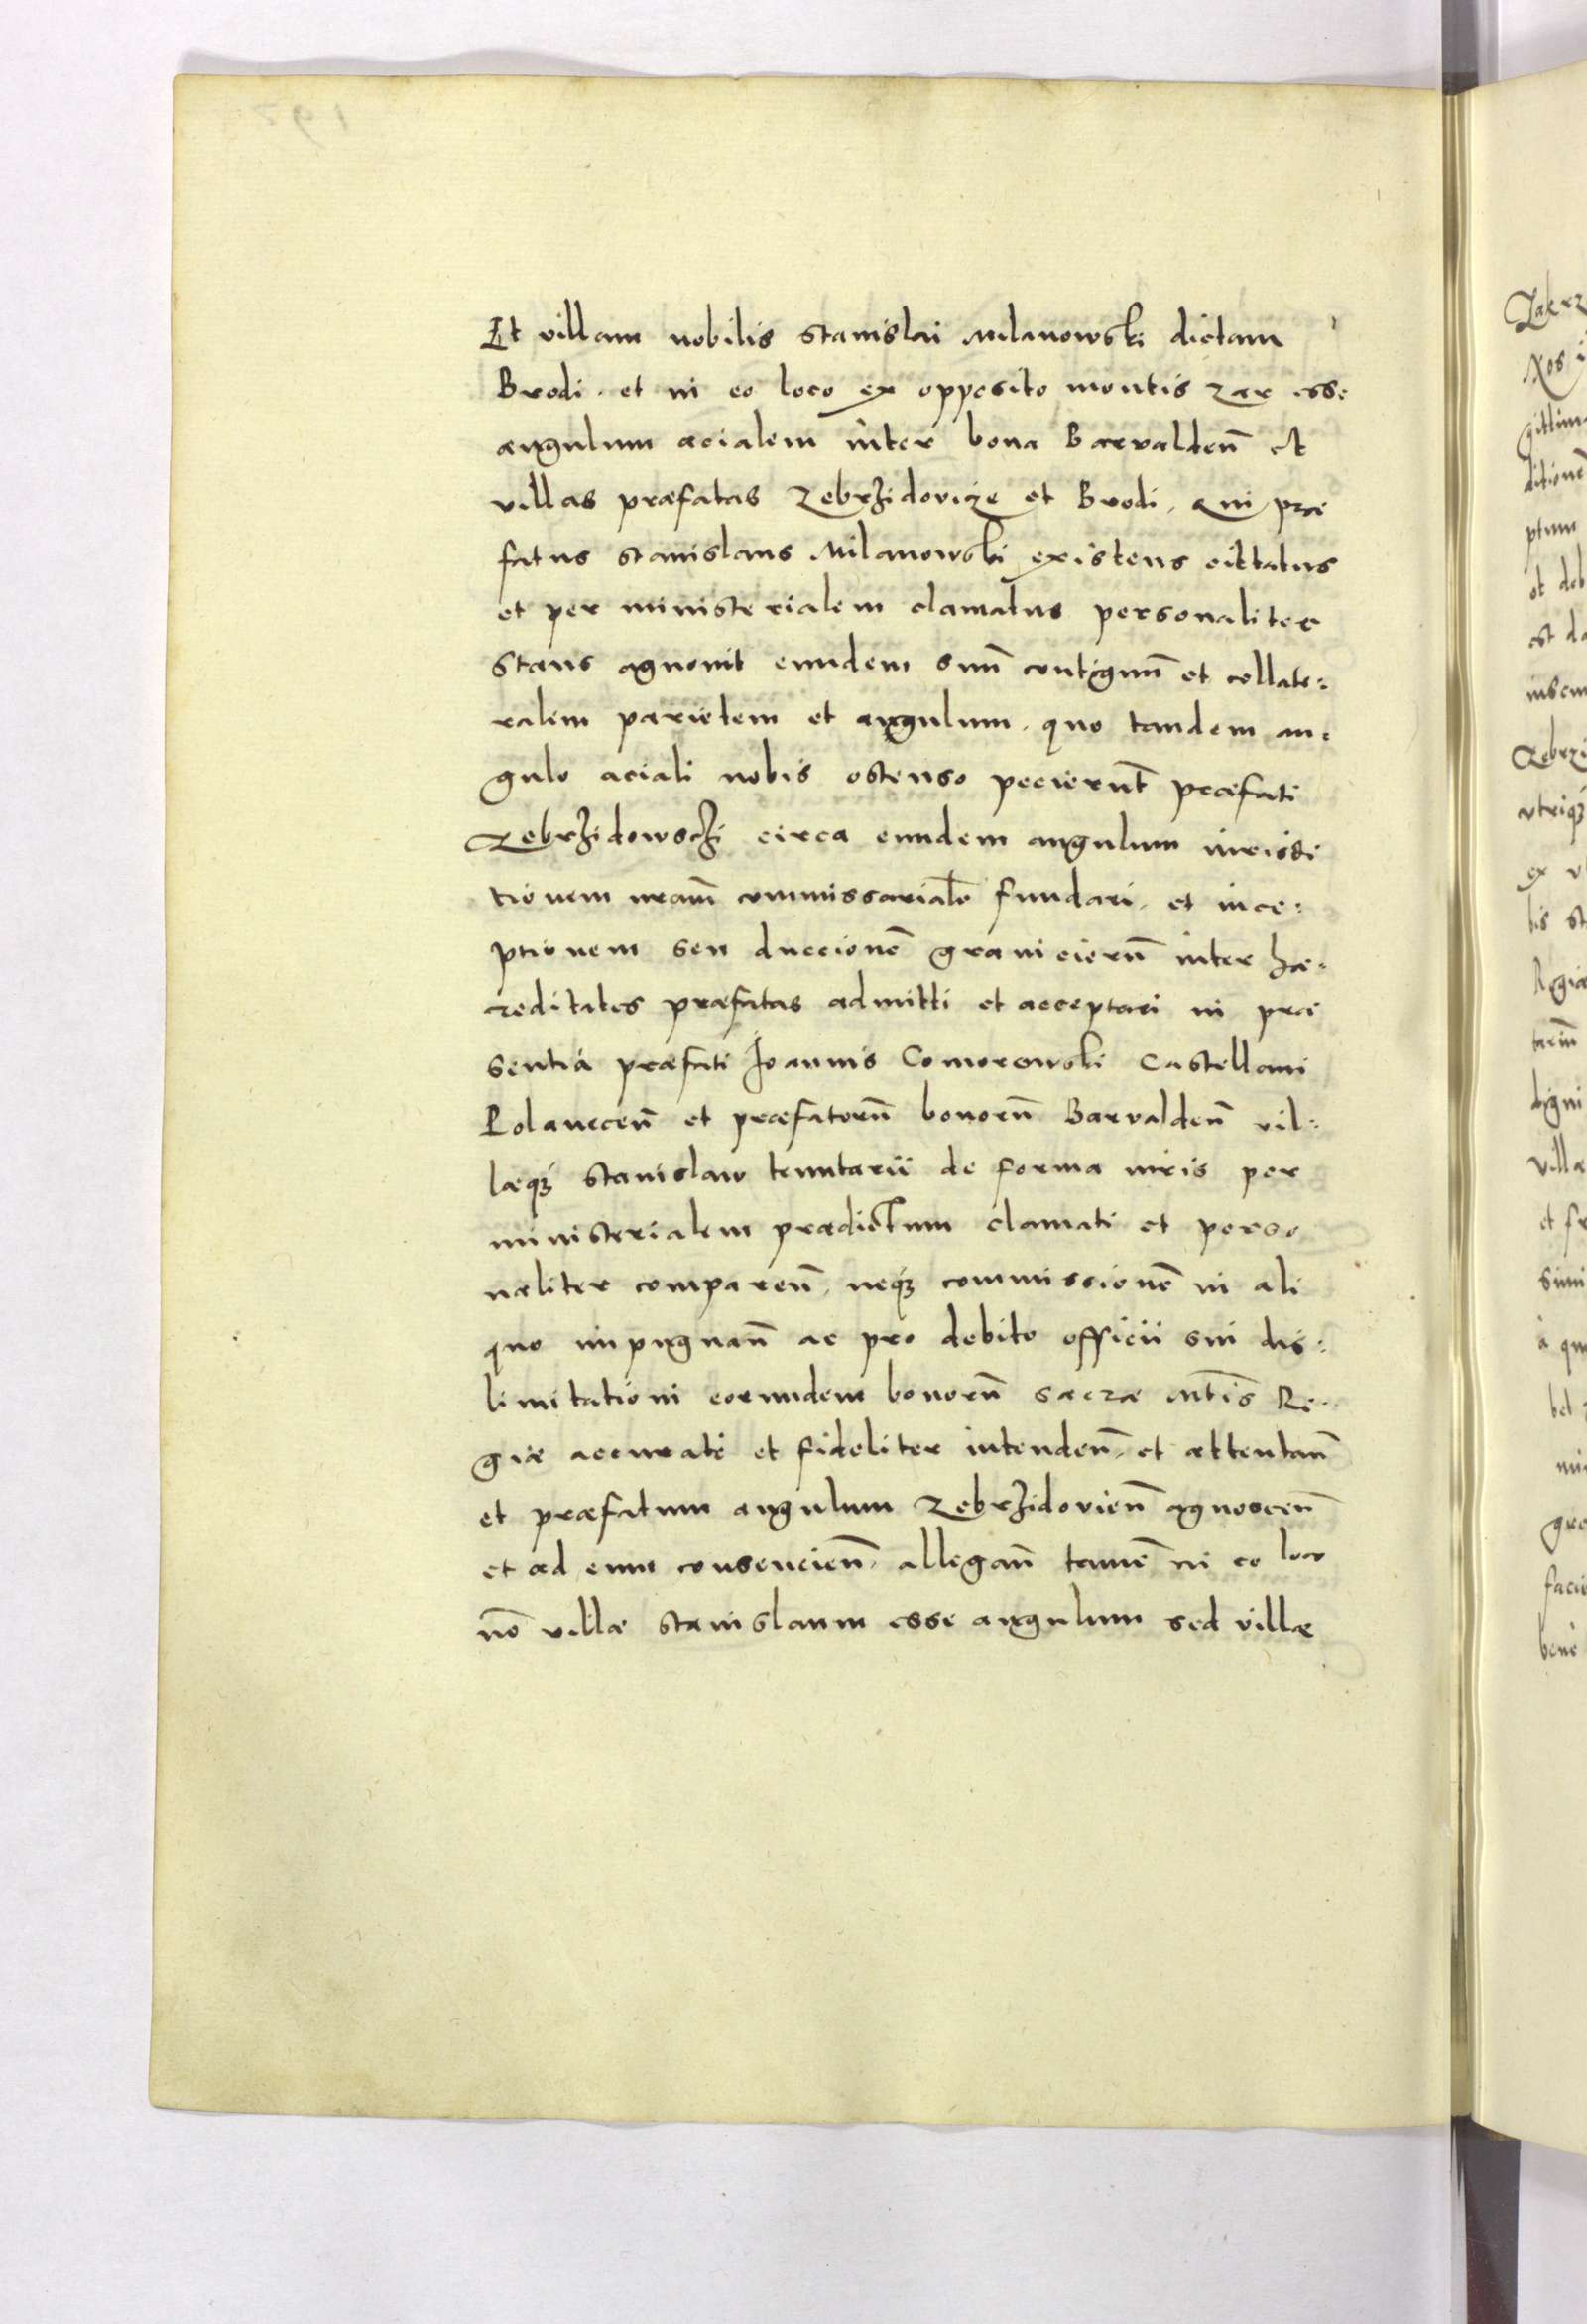 Et villam nobilis Stanislai Milanowski dictam
Brodi. et in eo loco ex opposito montis Zar esse
angulum acialem inter bona Barvalden̄ et
villas præfatas Zebrzidovicze et Brodi. Qui præ
fatus Stanislaus Milanowski existens cittatus
et per ministerialem clamatus personaliter
stans agnovit eundem suum̄ contiguum̄ et collate:
ralem parietem et angulum. quo tandem an:
gulo aciali nobis ostenso pecierunt præfati
Zebrzidowsczi circa eundem angulum iurisdi
tionem nr̄am commissarialē fundari. et ince:
ptionem seu duccionē granicierum̄ inter hæ:
reditates præfatas admitti et acceptari in præ
sentia præfati Joannis Comorowski Castellani
Polanecen̄ et præfatorum̄ bonorum̄ Barvalden̄ vil:
læq́ꝫ Stanislaw tenutarii de forma iuris per
ministerialem prædictum clamati et perso
naliter comparen̄. neq́ꝫ commissionē in ali
quo impugnan̄ ac pro debito officii sui dis:
limitationi eorundem bonorum̄ sacræ Mt̄is Re:
giæ accuratè et fideliter intenden̄. et attentan̄
et præfatum angulum Zebrzidovien̄ agnoscen̄
et ad eum consencien̄. allegan̄ tamē in eo loco
nō villæ Stanislaum esse angulum sed villæ